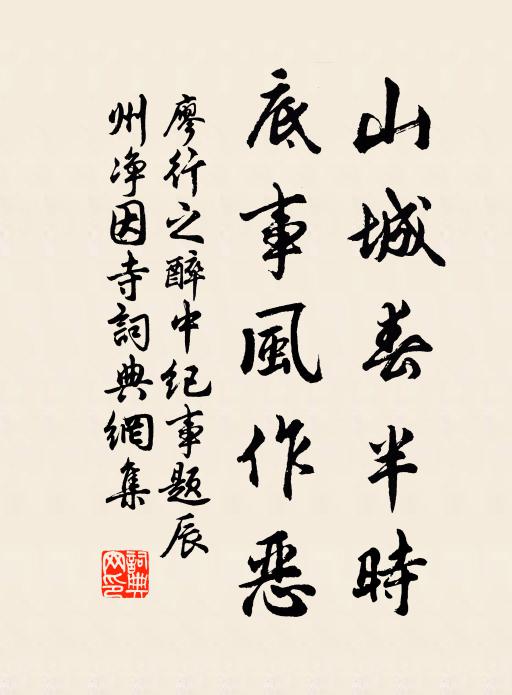 山城春半時
底事風作惡
廖行之醉中纪事题辰
州净因寺詞典網集
詞典網印